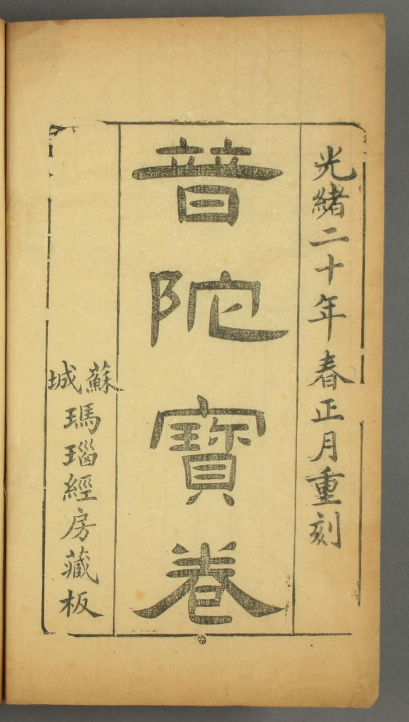 光緒二十年春正月重刻
普陀寳卷
蘇城瑪瑙經房藏板